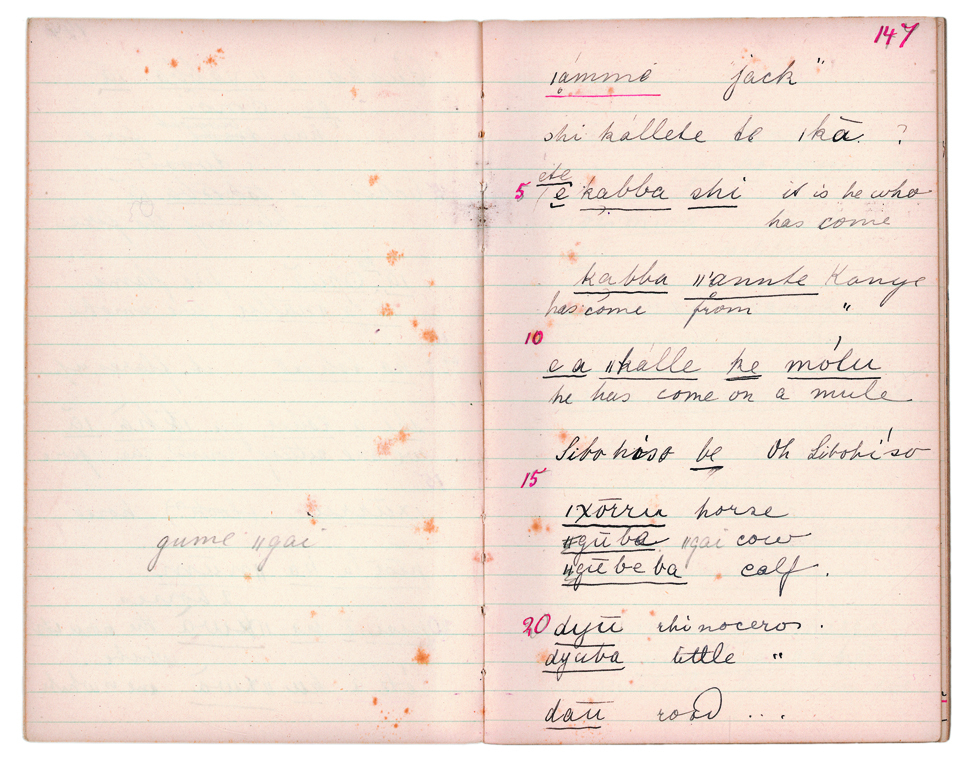 gume ǁgai
147
ıạ́mmé jack "
shi kállete te ıkā. ?
éte
5 e kabba shi it is he who
has come
kabba ǁ'annte Kanye
has come from "
10
e a ǁkálle ke mólu
he has come on a mule
Sibohóso be Oh Sibohíso
15
ıxōrru horse
ǁgūba ǁgai cow
ǁgūbeba calf.
20 dyū rhinoceros.
dyuba little "
daū road ...